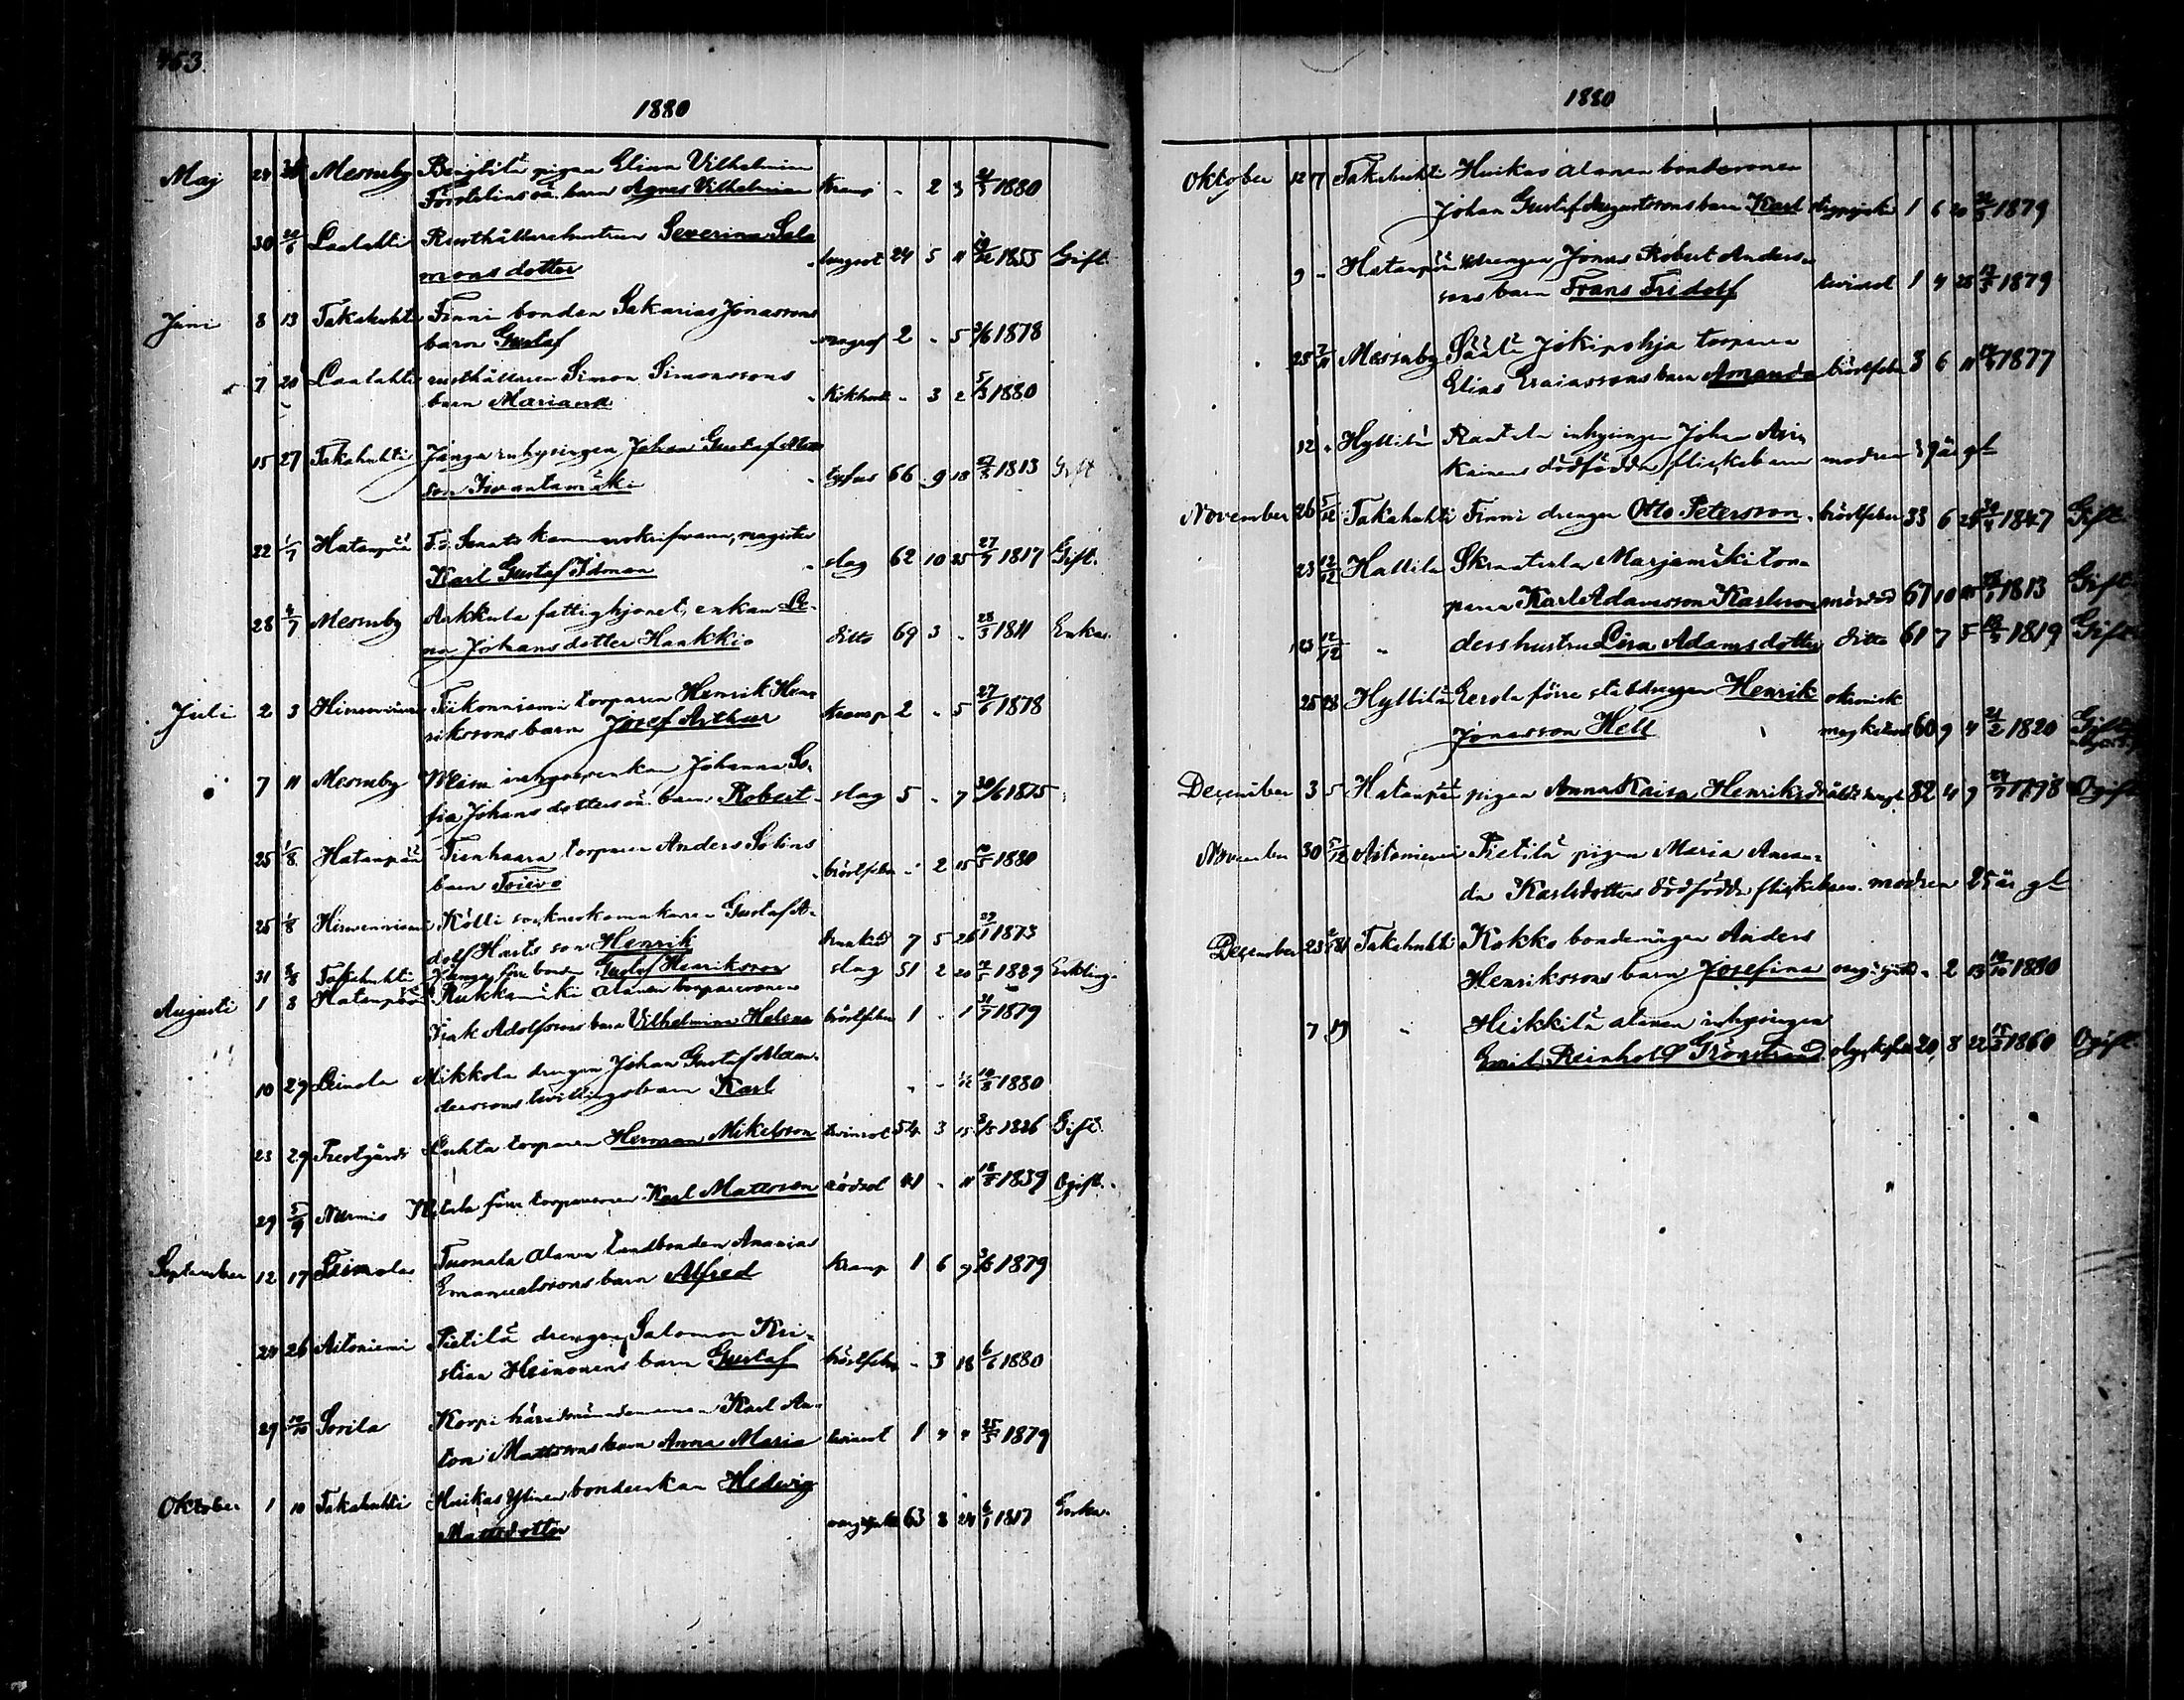 453.
1880
Maj 24 Messuby Bengtilä pigan Elina Vilhelmina
Forstelius oä. barn Agnes Vilhelmina Kramp - 2 3 1880
30 Laalahti Rusthållarehustrun Severina Salo
mons dotter lungsot 24 5 11 1855 Gift.
Juni 8 13 Takahuhti Finni bonden Sakarias Jonassons
barn Gustaf 2 - 5 1878
7 20 Laalahti rusthållaren Simon Simonssons
barn Mariana Kikhosta - 3 2 5/3 1880
15 27 Takahuhti Janga inhysingen Johan Gustaf
son tyfus 66 9 18 1813 Gift
22 1/7 Hatanpää F.d. Senats kammarskrifvaren, magister
Karl Gustaf Idman slag 62 10 25 27/7 1817 Gift.
28 4/7 Messuby Arkkula fattighjonet, enkan Le-
na Johansdotter Haukkio ditto 69 3 - 28/3 1811 Enka.
Juli 2 3 Hirvenniemi Tiikonniemi torparen Henrik Hen-
rikssons barn Josef Arthur Kramp 2 - 5 27/6 1878
7 11 Messuby inhysesenkan Johanna So-
fia Johansdotters oä. barn Robert slag 5 - 7 30/6 1875
25 1/8 Hatanpää Tienhaara torparen Anders Solins
barn Toivo bröstfeber - 2 15 1880
25 1/8 Hirvenniemi Kölli sockneskomakaren Gustaf A-
dolf Harts son Henrik 7 5 26 29/1 1873
31 8/8 Takahuhti Janga förre bonden Gustaf Henriksson slag 51 2 20 1829 Enkling.
Augusti 1 8 Hatanpää Rukkamäki alanen torparesonen
Isak Adolfssons barn Vilhelmina Helena bröstfeber 1 - 1 31/7 1879
10 29 Leinola Mikkola drengen Johan Gustaf Alexan-
derssons tvillingebarn Karl - - 1/12 10/8 1880
23 29 Prestgårds Luhta torparen Herman Mikelsson tvinsot 54 3 15 8/5 1826 Gift
29 5/9 Nurmis förre torparesonen Karl Mattsson rödsot 41 - 11 18/8 1839 Ogift.
September 12 17 Leinola Tuomala alanen landbonden Ananias
Emanuelssons barn Alfred Kramp 1 6 9 3/3 1879
24 26 Aitoniemi Pietilä drengen Salomon Kri-
stian Heinonens barn Gustaf bröstfeber - 3 18 6/6 1880
29 10/10 Sorila Korpi häradsnämndemannen Karl An-
ton Mattssons barn Anna Maria tvinsot 1 4 4 25/5 1879
Oktober 1 10 Takahuhti Huikas Ylinen bondeenkan Hedvig
Mattsdotter 63 8 24 6/1 1817 Enka.
1880
Oktober 12 17 Takahuhti Huikas alanen bondesonen
Johan Gustaf Augustssons barn Karl 1 6 20 1879
9 - Hatanpää drengen Jonas Robert Anders-
sons barn Frans Fridolf tvinsot 1 4 28 1879
25 7/11 Messuby Säali Jokipohja torparen
Elias Esaiassons barn Amanda bröstfeber 3 6 11 1877
12 - Hyllilä Rautala inhysingen Johan
kainens dödfödda flickebarn modren 39 år gl
November 26 5/12 Takahuhti Finni drengen Otto Petersson bröstfeber 33 6 1847 Gift
23 12/12 Hallila Skruutula Marjamäki tor-
paren Karl Adamsson Karlsson mördad 67 10 1813 Gift
23 12/12 " dess hustru Lisa Adamsdotter ditto 61 7 5 1819 Gift
25 28 Hyllilä Eerola förre stalldrengen Henrik
Jonasson Hell kronisk magkatarr 60 9 4 21/2 1820 Gift
December 3 5 Hatanpää pigan Anna Kaisa Henriksdr 82 4 9 24/7 1798 Ogift
November 30 5/12 Aitoniemi Pietilä pigan Maria Aman-
da Karlsdotters dödfödda flickebarn modren 25 år gl
December 23 Takahuhti Kokko bondemågen Anders
Henrikssons barn Josefina - 2 13 10/10 1880
7 19 " Heikkilä alanen inhysingen
Emil Reinhold Grönstrand olyckshändelse 20 8 22 15/3 1860 Ogift